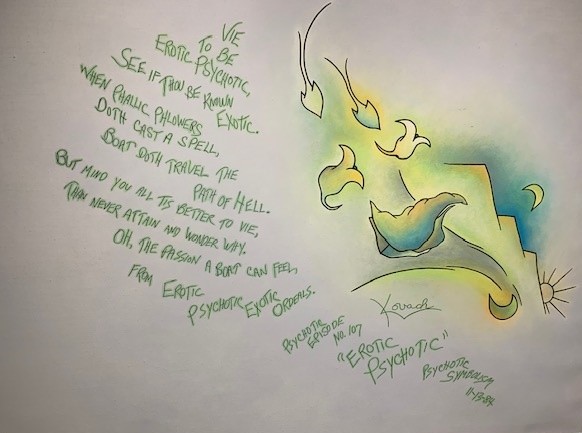 VIE
TO BE
EROTIC PSYCHOTIC,
SEE IF THOU BE KNOWN
EXOTIC.
WHEN PHALLIC PHLOWERS
DOTH CAST A SPELL,
BOAT DOTH TRAVEL THE
PATH OF HELL.
BUT MIND YOU ALL TIS BETTER TO VIE,
THAN NEVER ATTAIN AND WONDER WHY.
OH, THE PASSION A BOAT CAN FEEL,
FROM EROTIC
PSYCHOTIC EXOTIC
ORDEALS.
Kovach
PSYCHOTIC
EPISODE
NO. 107
"EROTIC
PSYCHOTIC"
PSYCHOTIC
SYMBOLISM
11-13-87